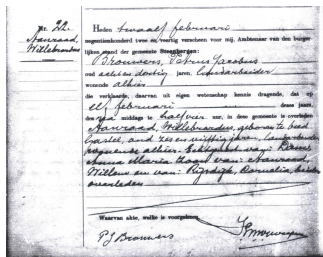 nr. 22.
Aanraad,
Willebrordus
Heden twaalf februari
negentienhonderd twee en veertig verscheen voor mij, Ambtenaar van den burger-
lijken stand der gemeente Steenbergen:
Brouwers, Petrus Jacobus
oud acht en dertig jaren, Landarbeider
wonende alhier
die verklaarde, daarvan uit eigen wetenschap kennis dragende, dat op
elf februari dezes jaars,
des na middags te half vier uur, in deze gemeente is overleden
Aanraad, Willebrordus, geboren te Oud
Gastel, oud zes en vijftig jaren, Landarbeider
wonende alhier. Echtgenoot van:
Anna Maria. Zoon van: Aanraad,
Willem en van: Rijsdijk, Cornelia, beiden
overleden
Waarvan akte, welke is voorgelezen.
P J Brouwers